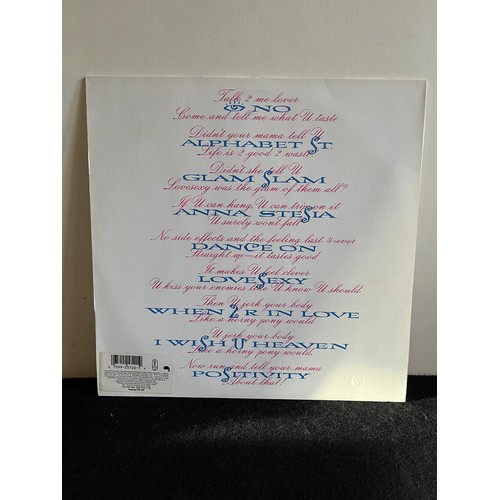 Talk 2 me lover
EYE NO
Come and tell me what U taste
Didn't your mama tell U
ALPHABET ST.
Life is 2 good 2 waste
Didn't she tell U
GLAM SLAM
Lovesexy was the glam of them all?
If U can hang, U can trip on it
ANNA STESIA
U surely won't fall
No side effects and the feeling last 4-ever
DANCE ON
Straight up—it tastes good
It makes U feel clever
LOVESEXY
U kiss your enemies like U know U should
Then U jerk your body
WHEN 2 R IN LOVE
Like a horny pony would
U jerk your body
I WISH U HEAVEN
Like a horny pony would
Now run and tell your mama
POSITIVITY
About that!